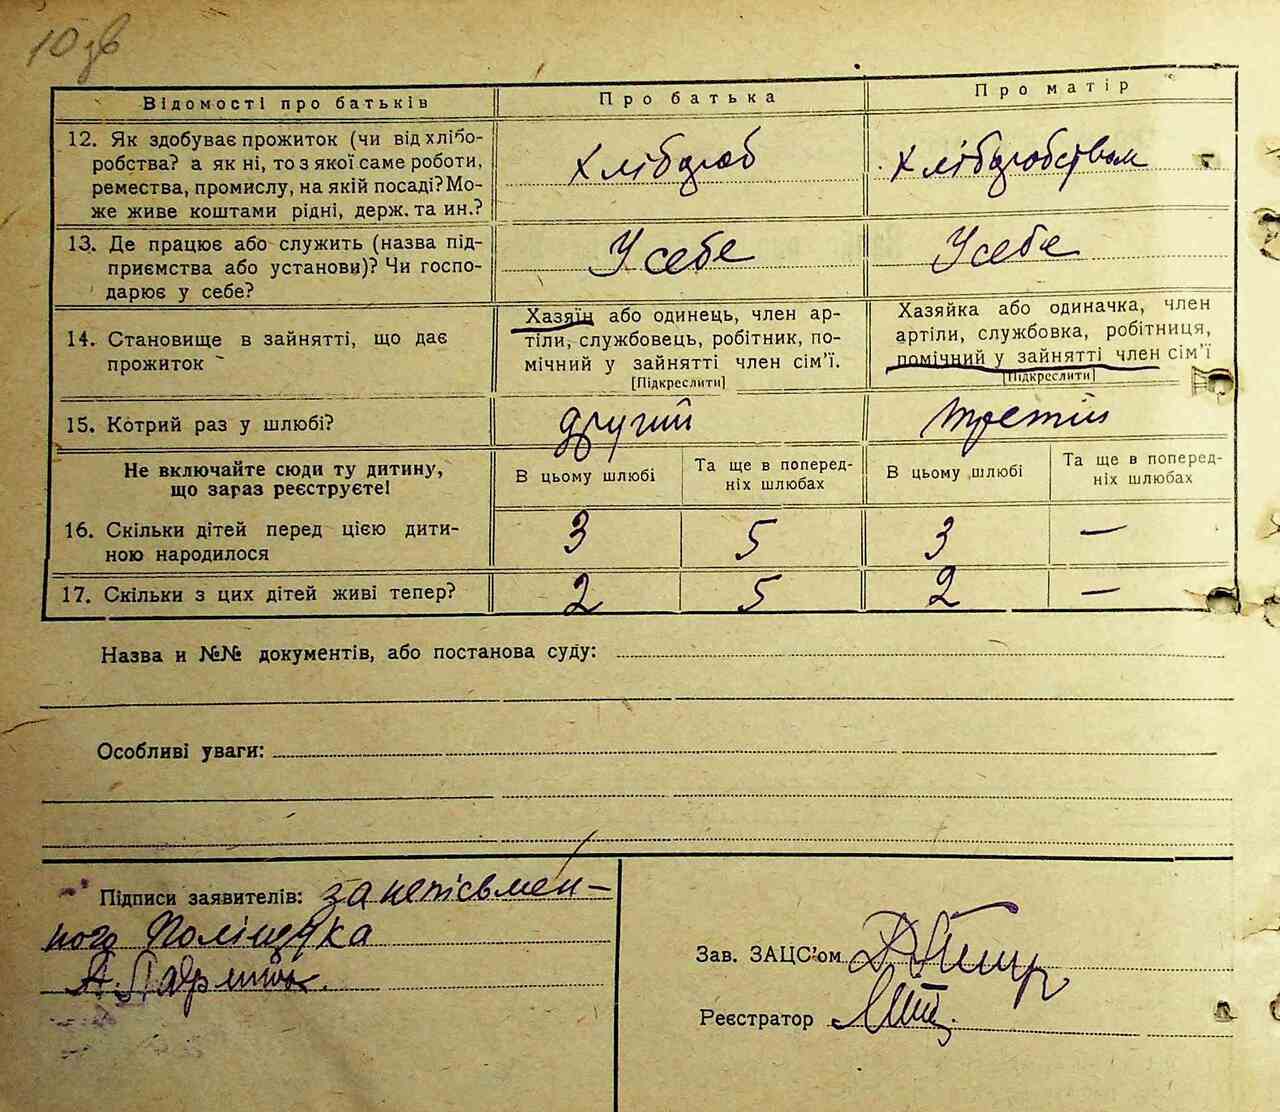 10 зв
Відомості про батьків
Про батька
Про матір
12. Як здобуває прожиток (чи від хлібо-
робства? а як ні, то з якої саме роботи,
ремества, промислу, на якій посаді? Мо-
же живе коштами рідні, держ. та ин.?
Хлібороб
Хліборобством
13. Де працює або служить (назва під-
приємства або установи)? Чи госпо-
дарює у себе?
У себе
У себе
14. Становище в зайнятті, що дає
прожиток
Хазяїн або одинець, член ар-
тіли, службовець, робітник, по-
мічний у зайнятті член сім'ї.
[Підкреслити]
Хазяйка або одиначка, член
артіли, службовка, робітниця,
помічний у зайнятті член сім'ї
[Підкреслити]
15. Котрий раз у шлюбі?
другий
третій
Не включайте сюди ту дитину,
що зараз реєструєте!
В цьому шлюбі
Та ще в поперед-
ніх шлюбах
В цьому шлюбі
Та ще в поперед-
ніх шлюбах
16. Скільки дітей перед цією дити-
ною народилося
3
5
3
—
17. Скільки з цих дітей живі тепер?
2
5
2
—
Назва и №№ документів, або постанова суду:
Особливі уваги:
Підписи заявителів: за неписьмен-
ного Поліщука
Зав. ЗАЦС'ом
Реєстратор